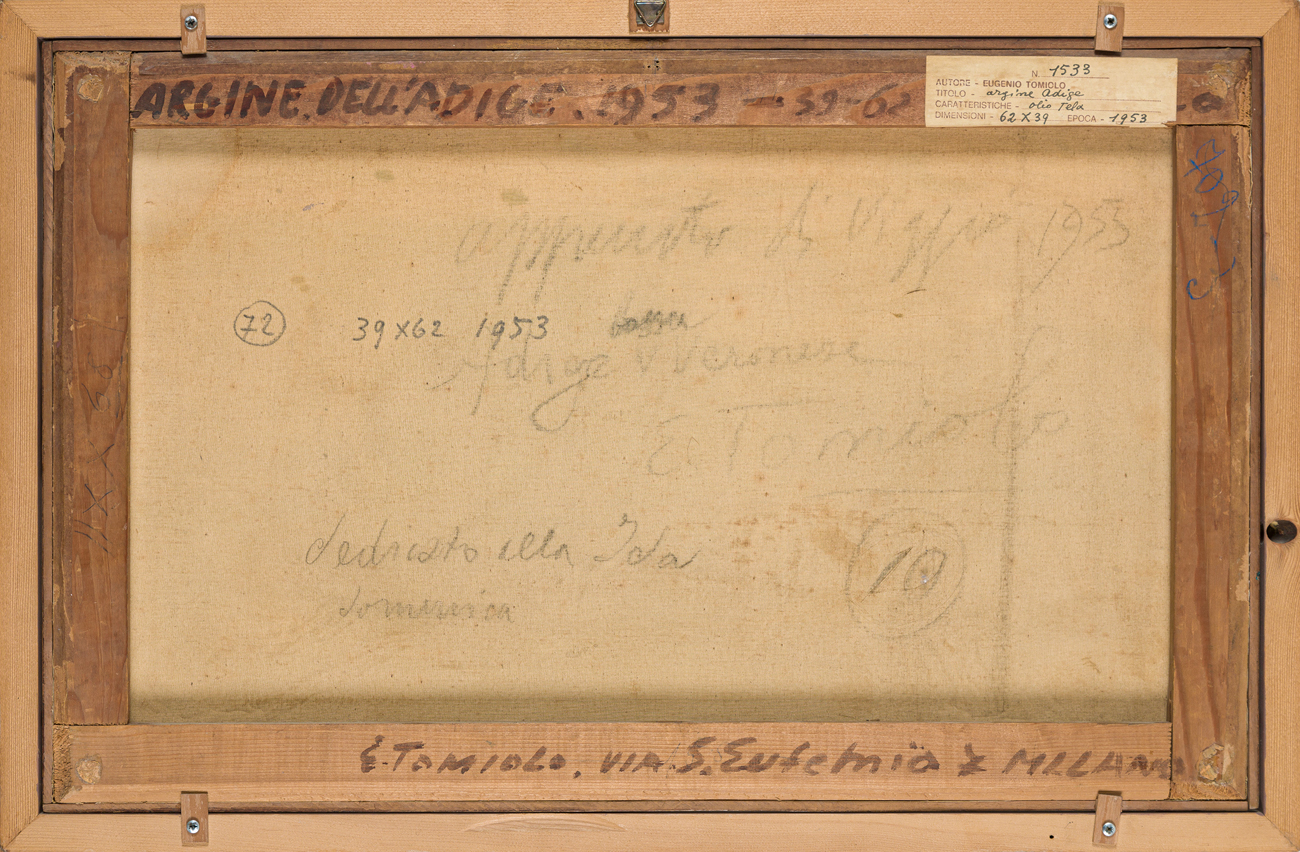 ARGINE.DELL'ADIGE.1953 - 39-62
N. 1533
AUTORE - EUGENIO TOMIOLO
TITOLO - argine Adige
CARATTERISTICHE - olio Tela
DIMENSIONI - 62X39 EPOCA - 1953
appunto di 1953
72 39X62 1953 bassa
Adige Veronese
E. Tomiolo
dedicato alla Ida
10
domenica
E. TOMIOLO. VIA. S. Eufemia MILANO